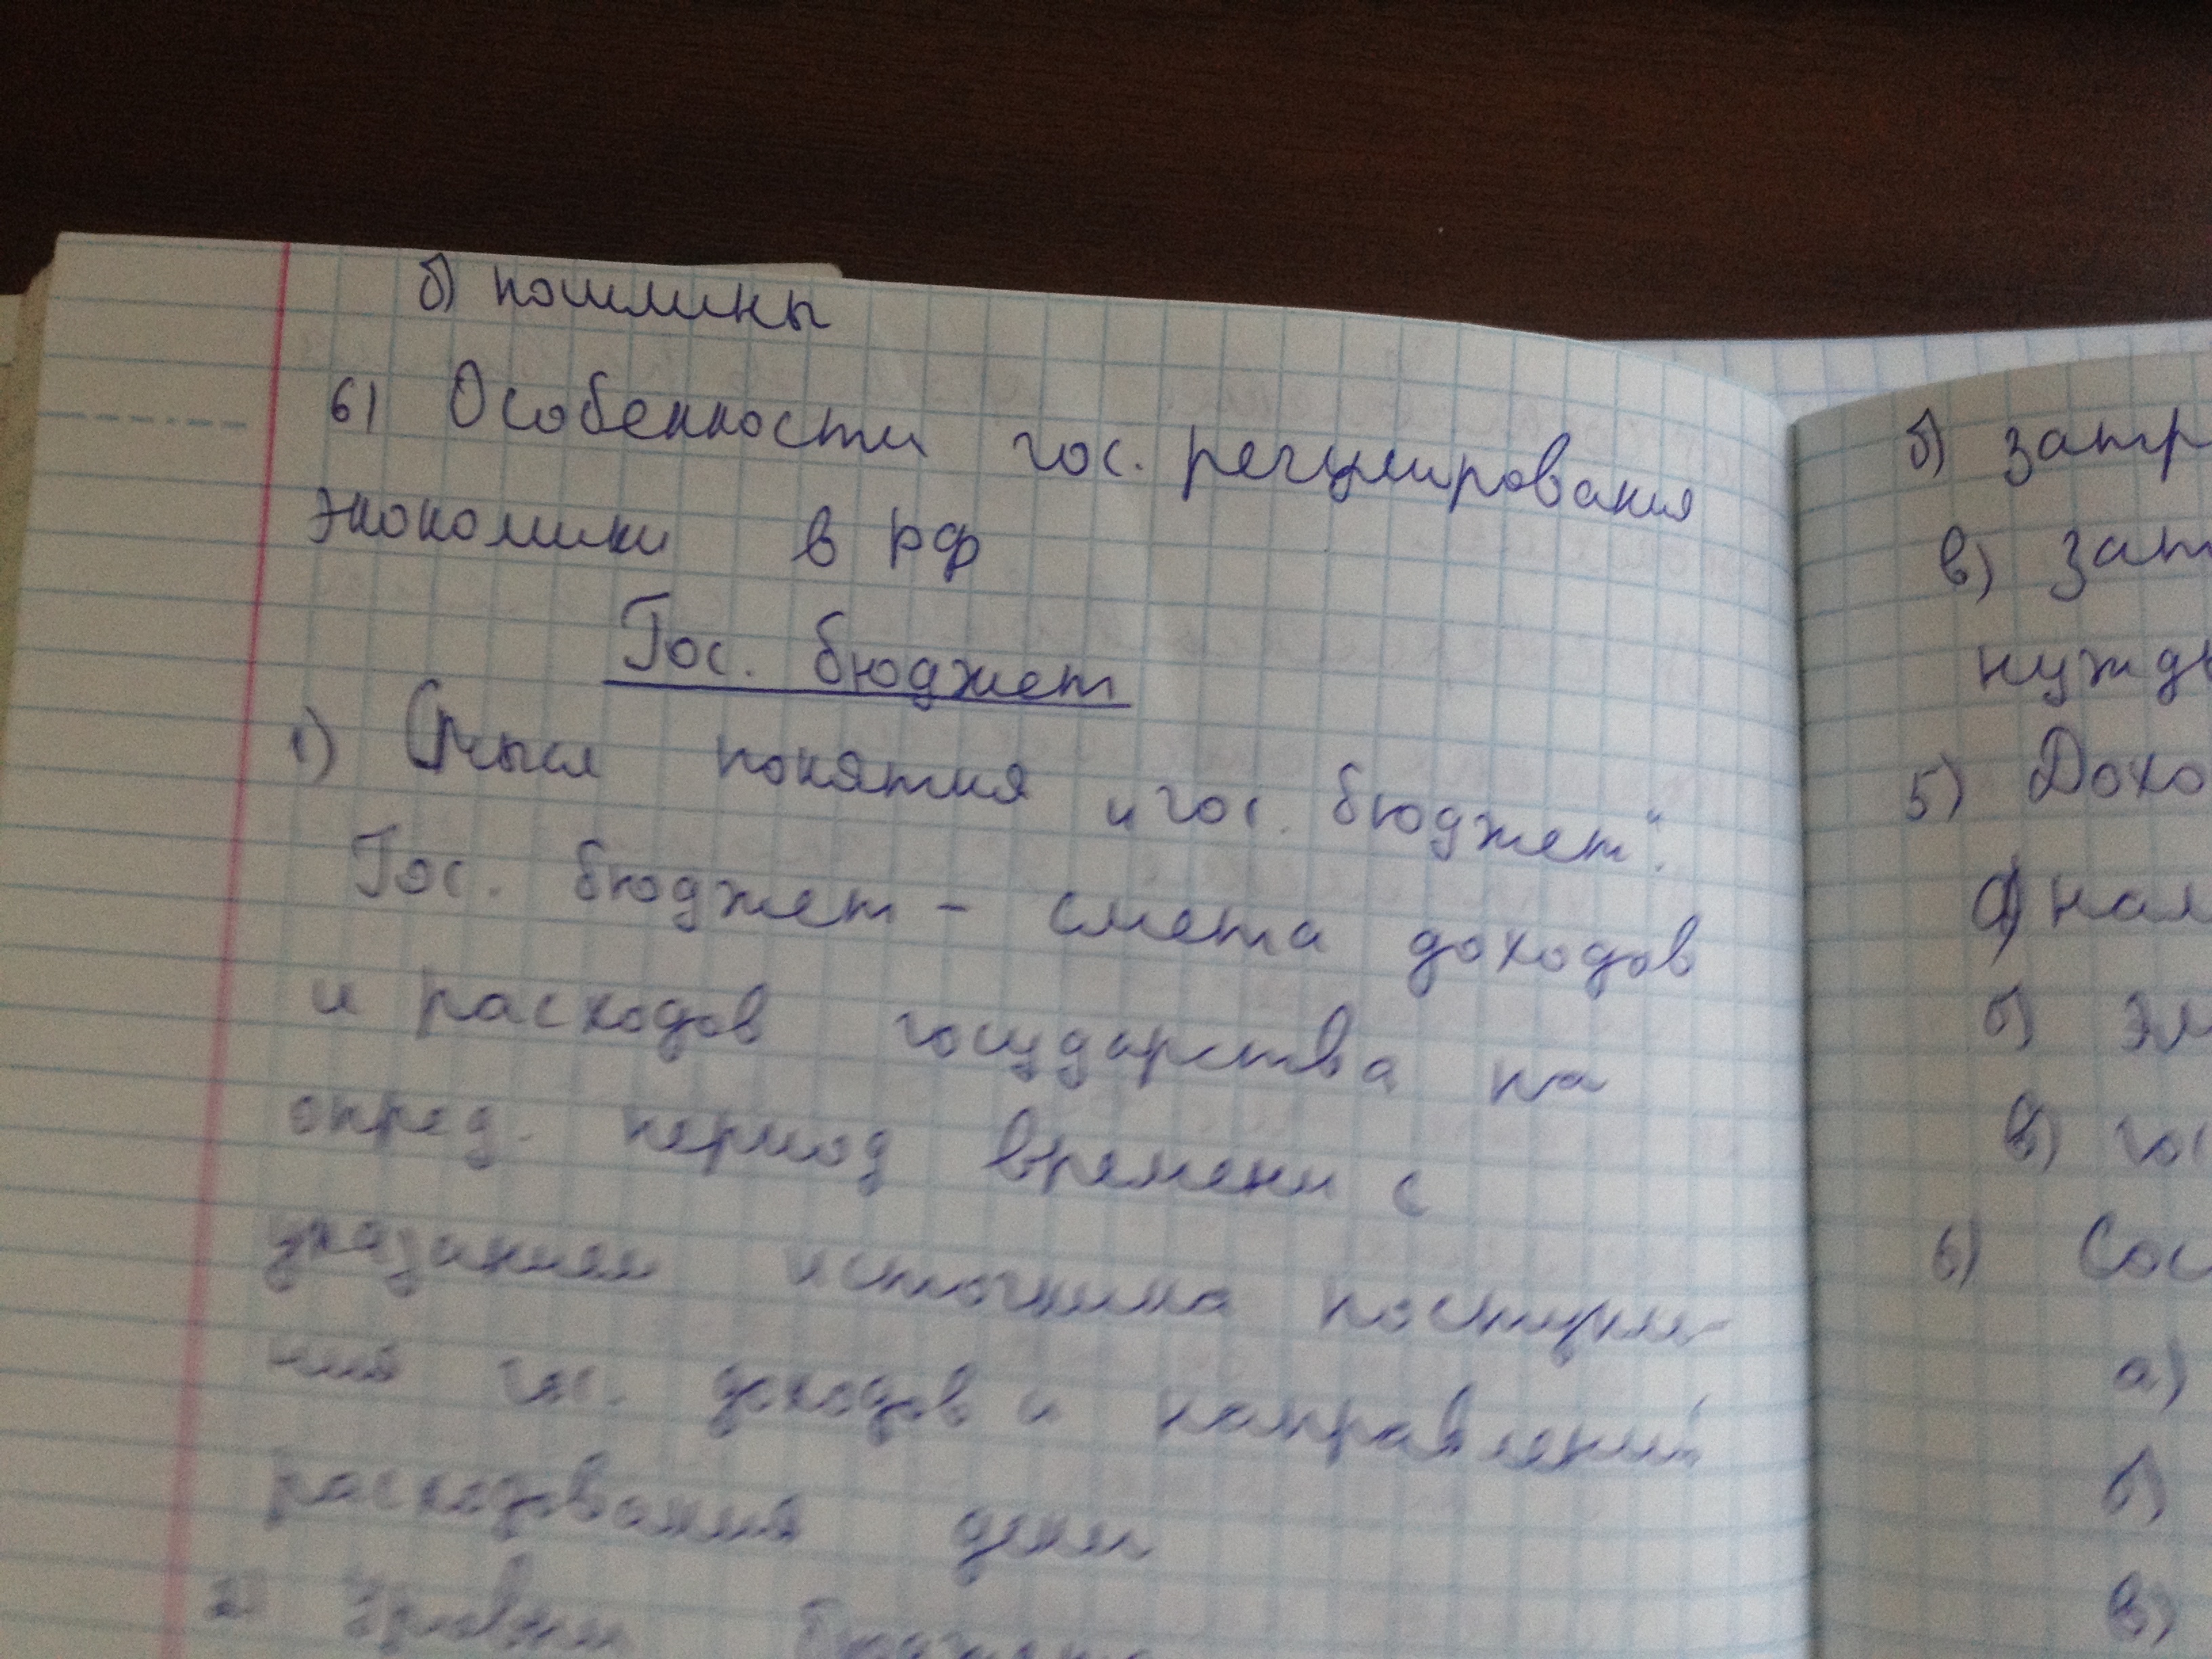 б) пошлины
6) Особенности гос. регулирования
экономики в РФ
Гос. бюджет
1) Смысл понятия „гос. бюджет“.
Гос. бюджет - смета доходов
и расходов государства на
опред. период времени с
указанием источника поступле-
ния гос. доходов и направлений
расходования
2) Уровни
б) затр
в) зат
нужды
5) Дохо
а) нал
б) эм
в) гос
6) Сос
а)
б)
в)